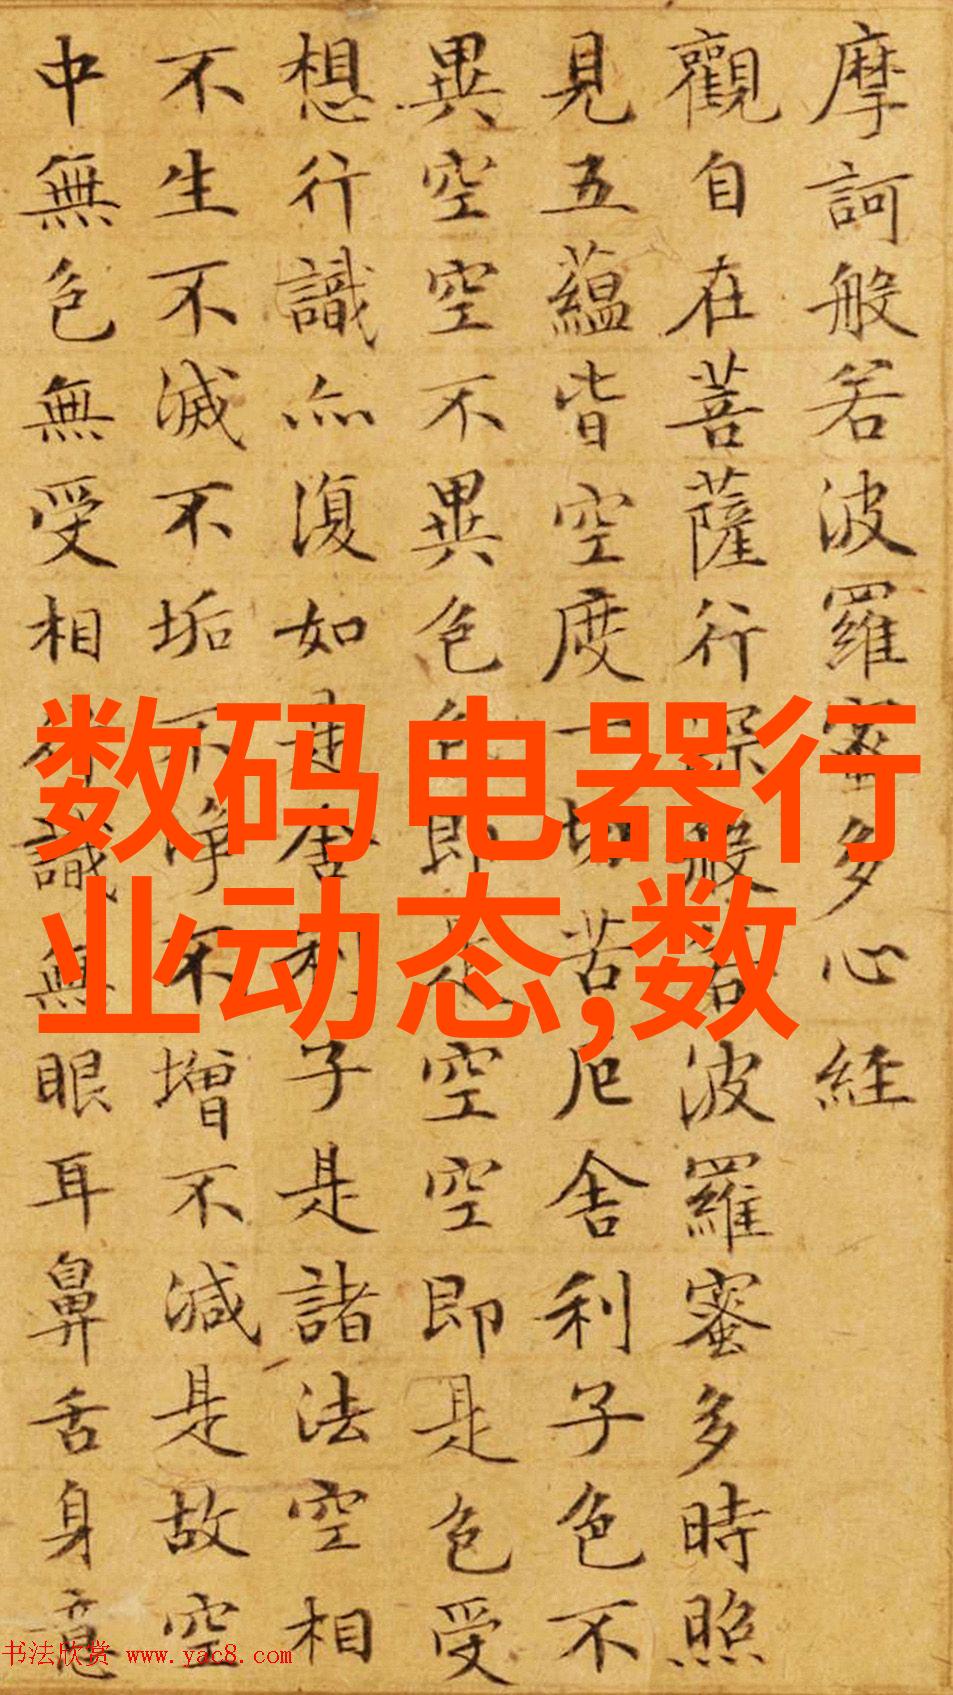 摩訶般若波羅蜜多心經
觀自在菩薩行深般若波羅蜜多時照
見五蘊皆空度一切苦厄舍利子色不
異空空不異色色即是空空即是色受
想行識亦復如是舍利子是諸法空相
不生不滅不垢不淨不增不減是故空
中無色無受相行識無眼耳鼻舌身意
数码电器行
业动态,数
书法欣赏 www.yac8.com